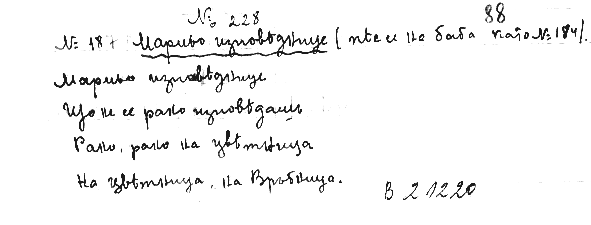 № 228
88
№ 187 Марийо изповѣднице (пѣе се на баба като № 184).
Марийо изповѣднице
Що ми се рано изповѣдашъ
Рано, рано на цвѣтница
На цвѣтница, на Връбница.
В 21220